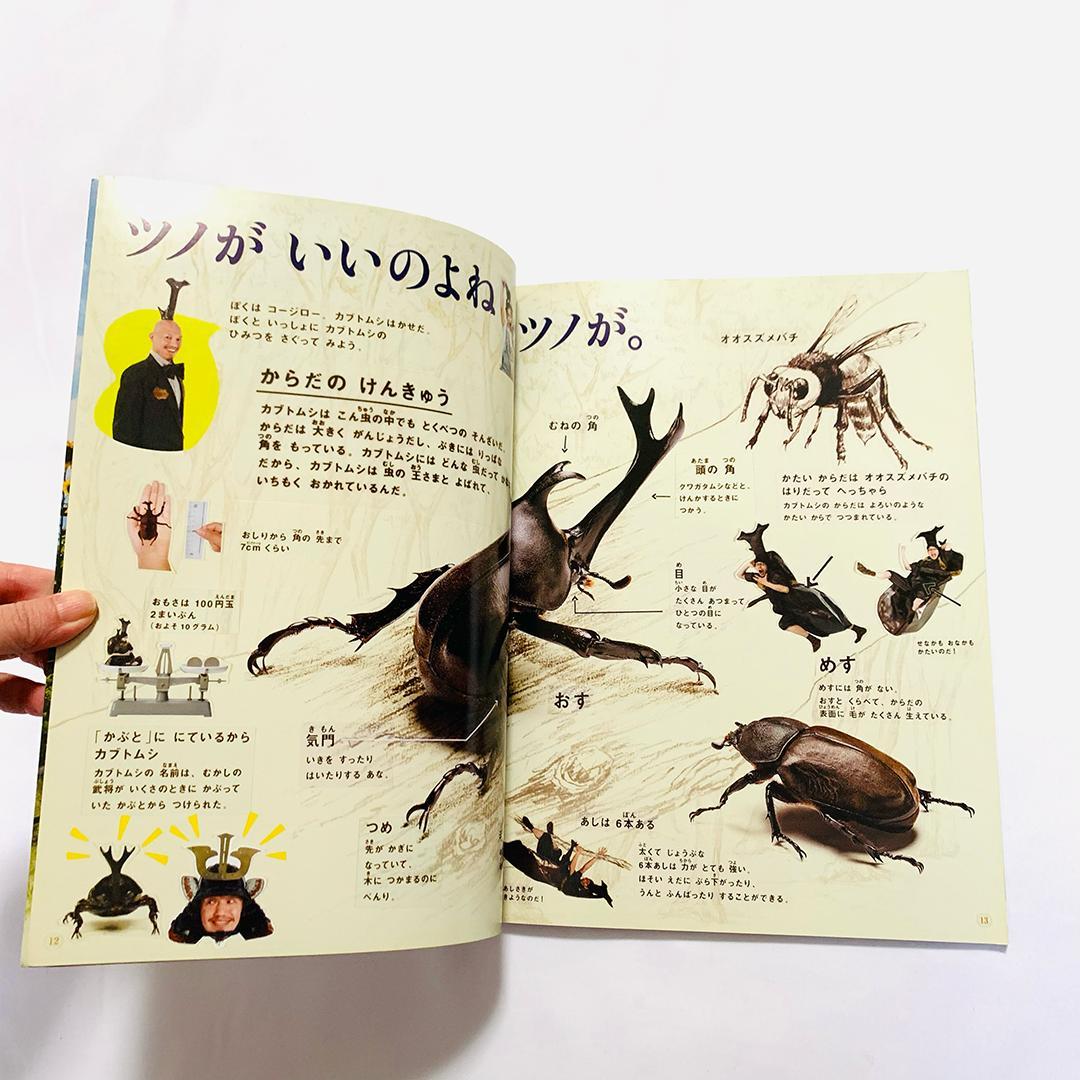 ツノが いいのよね
ぼくは コージロー。カブトムシはかせだ。
ぼくと いっしょに カブトムシの
ひみつを さぐって みよう。
からだの けんきゅう
カブトムシは こん虫の中でも とくべつの そんざいだ。
からだは 大きく がんじょうだし、ぶきには りっぱな
角を もっている。カブトムシには どんな 虫だって
だから、カブトムシは 虫の 王さまと よばれて、
いちもく おかれているんだ。
おしりから 角の 先まで
7cm くらい
おもさは 100円玉
2まいぶん
(およそ 10 グラム)
「かぶと」に にているから
カブトムシ
カブトムシの 名前は、むかしの
武将が いくさのときに かぶって
いた かぶとから つけられた。
気門
いきを すったり
はいたりする あな。
つめ
先が かぎに
なっていて、
木に つかまるのに
べんり。
12
ツノが。
オオスズメバチ
むねの 角
頭の 角
クワガタムシなどと、
けんかするときに
つかう。
かたい からだは オオスズメバチの
はりだって へっちゃら
カブトムシの からだは よろいのような
かたい からで つつまれている。
目
小さな 目が
たくさん あつまって
ひとつの目に
なっている。
せなかも おなかも
かたいのだ!
おす
めす
めすには 角が ない。
おすと くらべて、からだの
表面に 毛が たくさん 生えている。
あしは 6本ある
太くて じょうぶな
6本あしは 力が とても 強い。
ほそい えだに ぶら下がったり、
うんと ふんばったり することができる。
あしさきが
きようなのだ!
13